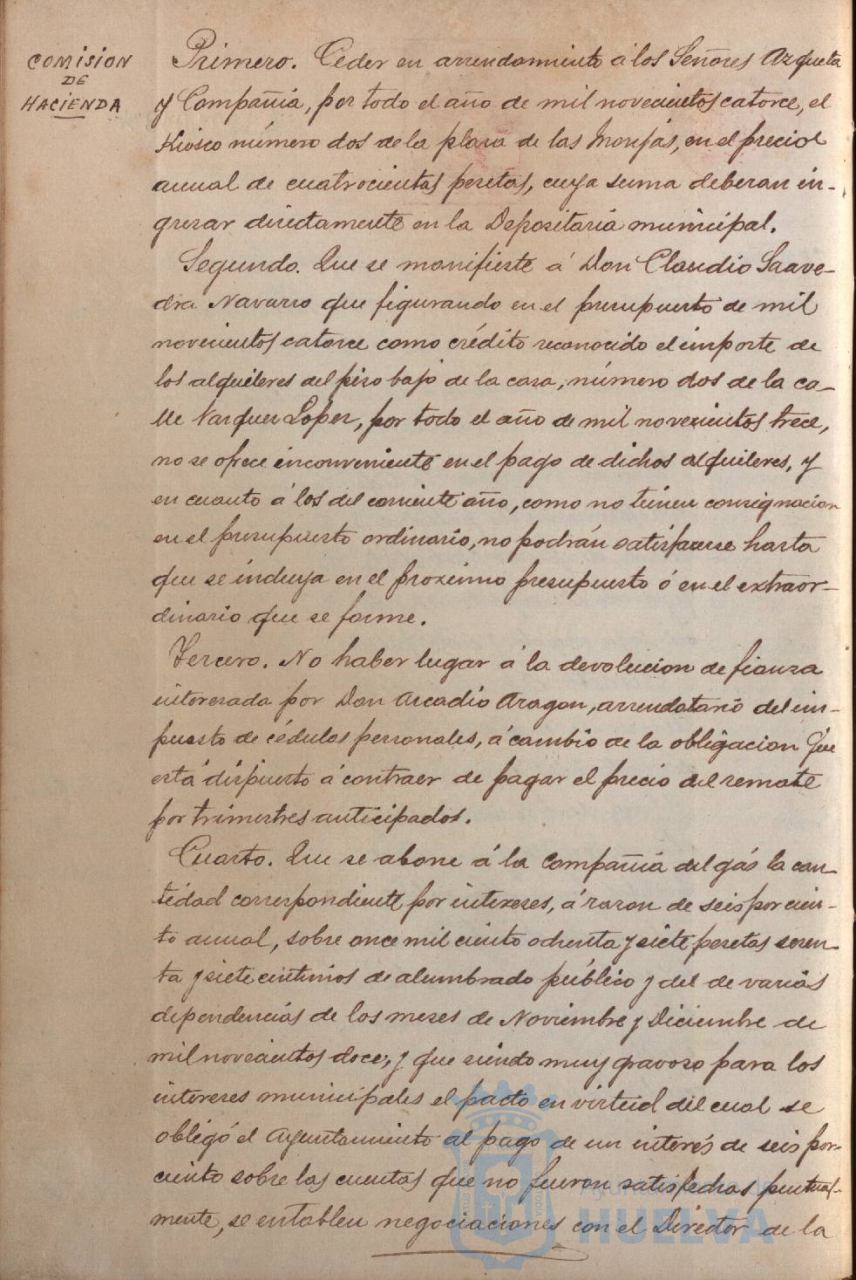 COMISION
DE
HACIENDA
Primero. Ceder en arrendamiento á los Señores Azqueta
y Compañía, por todo el año de mil novecientos catorce, el
Kiosco número dos de la plaza de las Monjas, en el precio
anual de cuatrocientas pesetas, cuya suma deberan in-
gresar directamente en la Depositaria municipal.
Segundo. Que se manifieste á Don Claudio Saave-
dra Navarro que figurando en el presupuesto de mil
novecientos catorce como crédito reconocido el importe de
los alquileres del piso bajo de la casa, número dos de la ca-
lle Vazquez Lopez, por todo el año de mil novecientos trece,
no se ofrece inconveniente en el pago de dichos alquileres, y
en cuanto á los del corriente año, como no tienen consignacion
en el presupuesto ordinario, no podrán satisfacerse hasta
que se incluya en el proximo presupuesto ó en el extraor-
dinario que se forme.
Tercero. No haber lugar á la devolucion de fianza
interesada por Don Arcadio Aragon, arrendatario del im-
puesto de cédulas personales, á cambio de la obligacion que
está dispuesto á contraer de pagar el precio del remate
por trimestres anticipados.
Cuarto. Que se abone á la Compañia del gás la can-
tidad correspondiente por intereses, á razon de seis por cien-
to anual, sobre once mil ciento ochenta y siete pesetas seten-
ta y siete centimos de alumbrado público y del de varias
dependencias de los meses de Noviembre y Diciembre de
mil novecientos doce, y que siendo muy gravoso para los
intereses municipales el pacto en virtud del cual se
obligó el Ayuntamiento al pago de un interés de seis por
ciento sobre las cuentas que no fueran satisfechas puntual-
mente, se entablen negociaciones con el Director de la
HUELVA